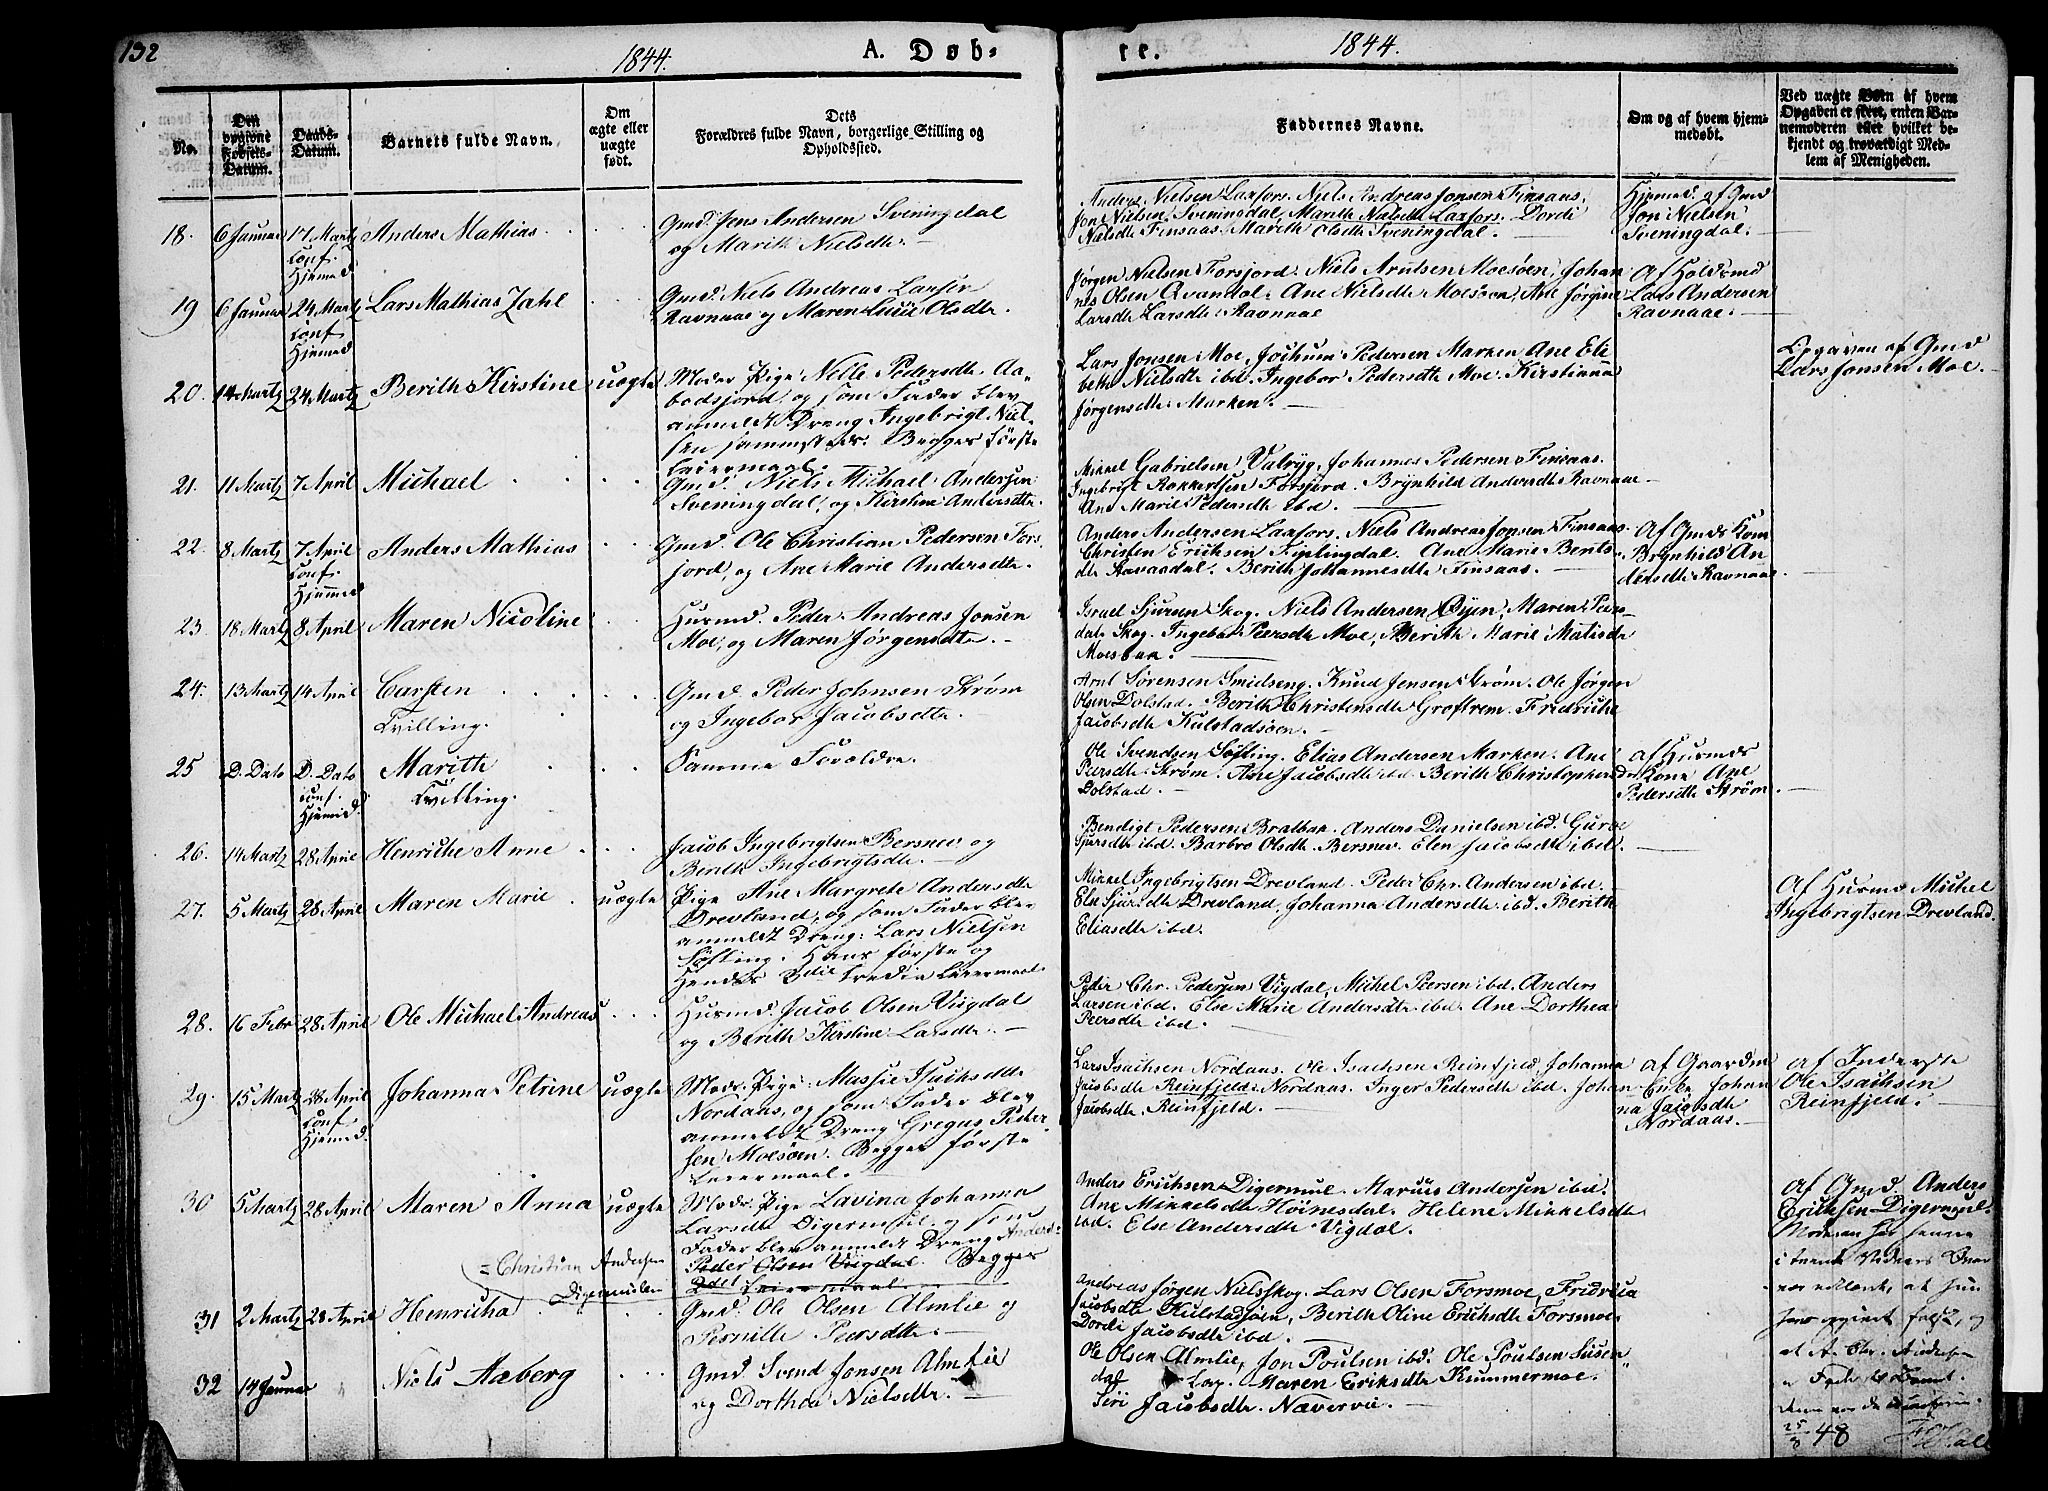 132
1844.
A. Døb-
te.
1844.
No.
Den
bygivne
Fødsels-
Datum.
Daabs-
Datum.
Barnets fulde Navn.
Om
ægte eller
uægte
født.
Dets
Forældres fulde Navn, borgerlige Stilling og
Opholdssted.
Faddernes Navne.
Om og af hvem hjem-
medøbt.
Ved uægte Børn af hvem
Opgaven er skeet, enten Bar-
nemoderen eller hvilket be-
kjendt og troværdigt Med-
lem af Menigheden.
18. 6 Januar 17 Martz
Conf.
Hjemmed
Anders Mathias
Gmd. Jens Andersen Sveningdal
og Marith Nielsdtr.
Anders Nielsen Laxfors. Niels Andreas Jonsen Finsaas.
Jon Nielsen Sveningdal, Marith Nielsdtr Laxfors. Dordi
Nielsdtr Finsaas. Marith Olsdtr Sveningdal.
Hjemmed. af Gmd
Jon Nielsen
Sveningdal.
19 6 Januar 24 Martz
Conf.
Hjemmed
Lars Mathias Zahl
Gmd. Niels Andreas Larsen
Ravnaas og Maren Lucie Olsdtr.
Jørgen Nielsen Forsjord. Niels Arntsen Moesøen, Johan
nes Olsen Qvandal. Ane Nielsdtr Moesøen, Ane Jørgine
Larsdtr Larsdtr Ravnaae
Af Holdsmd
Lars Andersen
Ravnaae.
20. 14 Martz 24 Martz
Berith Kirstine
uægte
Moder Pige Nelle Pedersdtr Aa-
bodsjord, og som Fader blev
anmeldt Dreng Ingebrigt Niel-
sen sammesteds. Begges første
Leiermaal.
Lars Jonsen Moe, Jochum Pedersen Marken Ane Eli
beth Nielsdtr ibd, Ingebor Pedersdtr Moe. Kirstianna
Jørgensdtr Marken.
Opgaven af Gmd
Lars Jonsen Moe.
21. 11 Martz 7 April
Michael
Gmd. Niels Michael Andersen
Sveningdal, og Kirstine Andersdtr.
Mikkel Gabrielsen Valryg, Johannes Pedersen Finsaas.
Ingebrigt Forsjord. Brynhild Andersdtr Ravnaae
Ane Marie Pedersdtr ibd.
22. 8 Martz 7 April
Conf.
Hjemmed
Anders Mathias
Gmd. Ole Christian Pedersen Fors
jord, og Ane Marie Andersdtr.
Anders Andersen Laxfors. Niels Andreas Jonsen Finsaas.
Christen Erichsen Fiplingdal. Ane Marie Bents-
dtr Stavasdal. Berith Johannesdtr Finsaas.
Af Gmds Kon
Brynhild An
dersdtr Ravnaae
23. 18 Martz 8 April
Maren Nicoline
Husmd. Peder Andreas Jonsen
Moe, og Maren Jørgensdtr.
Israel Sjursen Skog. Niels Andersen Øyen, Maren Peers-
datr Skog. Ingebor Peersdtr Moe, Berith Marie Matisdtr
Moesbak.
24. 13 Martz 14 April
Carsten
Tvilling.
Gmd. Peder Johnsen Strøm
og Ingebor Jacobsdtr.
Arnt Sørensen Smidseng. Knud Jensen Strøm. Ole Jørgen
Olsen Dolstad. Berith Christensdtr Groftrem. Fredriche
Jacobsdtr Kulstadsøen.
25 D. Dato D. Dato
Conf.
Hjemmed.
Marith
Tvilling.
Samme Forældre.
Ole Svendsen Søfting. Elias Andersen Marken. Ane
Peersdtr Strøm. Ane Jacobsdtr ibd. Berith Christophersdtr
Dolstad.
af Husmds
Kone Ane
Pedersdtr Strøm.
26. 14 Martz 28 April
Henriche Anne
Jacob Ingebrigtsen Bersnev og
Berith Ingebrigtsdtr.
Bendigt Pedersen Bratbak. Anders Danielsen ibd. Gurve
Sjursdtr ibd. Barbro Olsdtr Bersnev. Elen Jacobsdtr ibd.
27. 5 Martz 28 April
Maren Marie
uægte
Pige Ane Margrete Andersdtr
Drevland, og som Fader blev
anmeldt Dreng: Lars Nielsen
Søfting. Hans første og
Hendes 3die tredie Leiermaal.
Mikkel Ingebrigtsen Drevland. Peder Chr. Andersen ibd.
Else Sjursdtr Drevland, Johanna Andersdtr ibd. Berith
Eliasdtr ibd.
Af Husmd Michel
Ingebrigtsen Drevland.
28. 16 Febr 28 April
Ole Michael Andreas
Husmd. Jacob Olsen Vigdal
og Berith Kirstine Larsdtr.
Peder Chr. Pedersen Vigdal, Michel Peersen ibd. Anders
Larsen ibd. Else Marie Andersdtr ibd. Ane Dorthea
Peersdtr ibd.
29. 15 Martz 28 April
Conf
Hjemmed.
Johanna Petrine
uægte
Modr. Pige: Massie Isachsdtr
Nordaas, og som Fader blev
anmeldt Dreng Gregus Peder
sen Moesøen. Begges første
Leiermaal.
Lars Isachsen Nordaas. Ole Isachsen Reinfjeld, Johanna
Jacobsdtr Reinfjeld. Nordaas. Inger Pedersdtr ibd. Johan
Jacobsdtr Reinfjeld.
af Gaardm
Enke Johan
na Jacobsdtr
Nordaas.
af Inderste
Ole Isachsen
Reinfjeld.
30 5 Martz 28 April
Maren Anna
uægte
Modr. Pige Lavina Johanna
Larsdtr Digermul. og som
Fader blev anmeldt Dreng Anders
Peder Olsen Vigdal. Begges
2det Leiermaal
= Christian Andersen
Digermulen
Anders Erichsen Digermul. Marius Andersen ibd.
Ane Mikkelsdtr Høinesdal. Helene Mikkelsdtr
ibd. Else Andersdtr Vigdal.
Af Gmd. Anders
Erichsen Digermul.
Moderen har senere
at hun
falsk, og
at A. Chr. Andersen
er Fader til Barnet.
25/8 48
31 2 Martz 28 April
Henricha
Gmd. Ole Olsen Almlie og
Pernille Peersdtr.
Andreas Jørgen Nielsskog. Lars Olsen Forsmoe, Fridrica
Jacobsdtr Kulstadsjøen, Berith Oline Erichsdtr Forsmoe.
Dordi Jacobsdtr ibd.
32 14 Januar
Niels Aaberg
Gmd Svend Jonsen Almlie
og Dorthea Nielsdtr.
Ole Olsen Almlie, Jon Poulsen ibd. Ole Poulsen Susen-
dal Lap. Maren Eriksdtr Kummermoe.
Siri Jacobsdtr. Næverva.